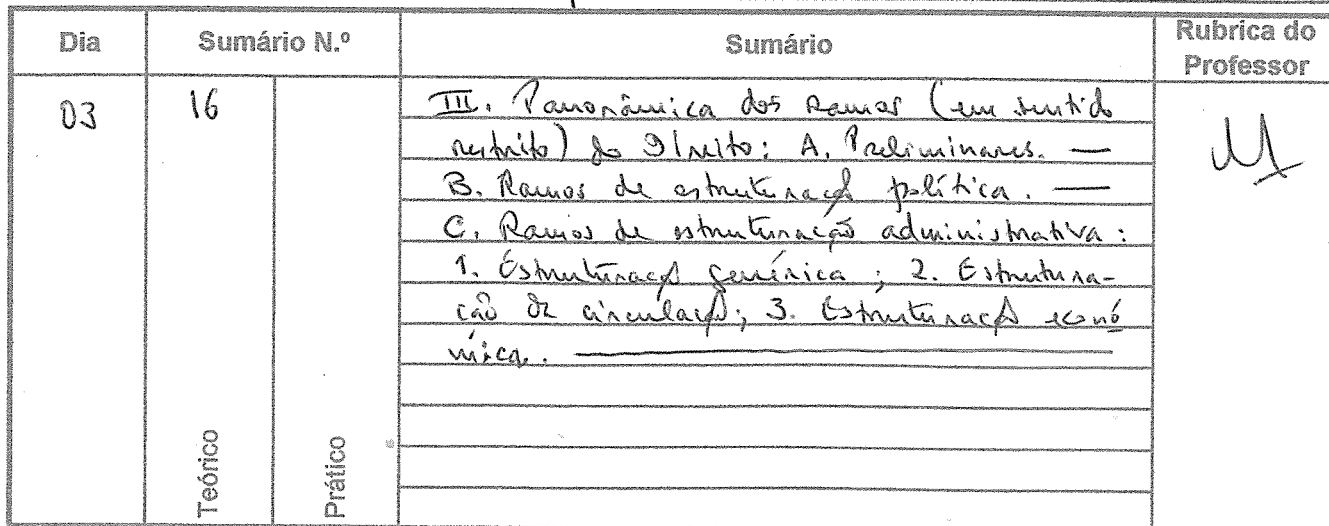 Dia Sumário N.º Sumário Rubrica do Professor
03 16
III. Panorâmica dos Ramos (em sentido
restrito) do Direito: A. Preliminares. —
B. Ramos de estruturação política. —
C. Ramos de estruturação administrativa:
1. Estruturação genérica; 2. Estrutura-
ção de circulação; 3. Estruturação econó
mica. —
Teórico
Prático